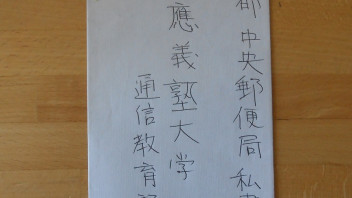 都中央郵便局 私書
應義塾大学
通信教育